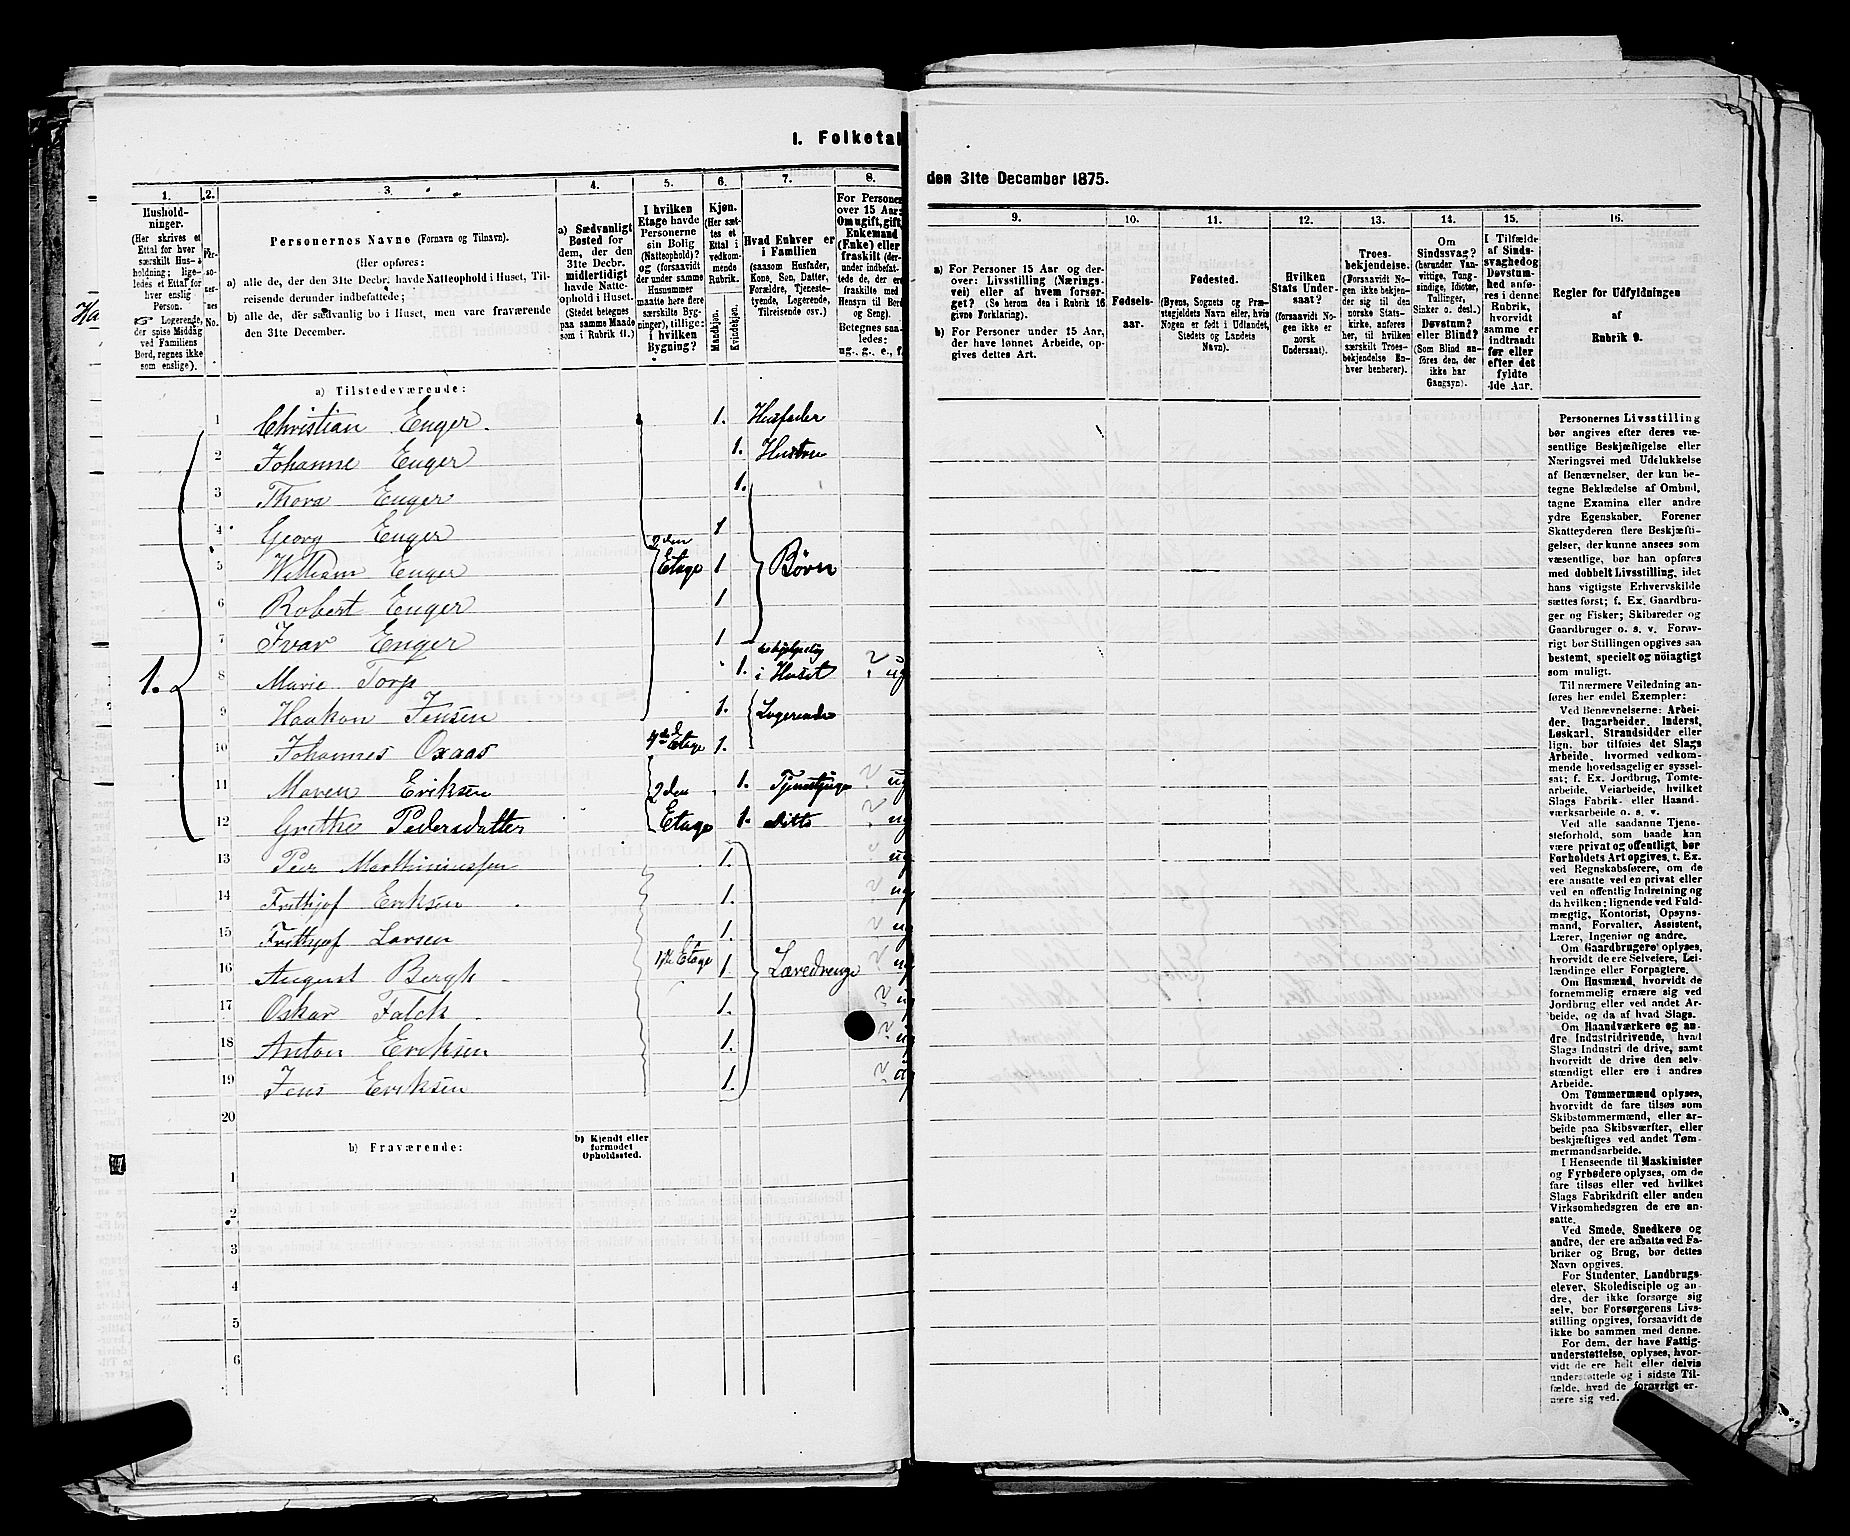 1. Folketal
1. 2. 3. 4. 5. 6. 7. 8.
Hushold-
ninger.
(Her skrives et
Ettal for hver
særskilt Hus-
holdning; lige-
ledes et Ettal for
hver enslig
Person.
Logerende,
der spise Middag
ved Familiens
Bord, regnes ikke
som enslige).
Per-
so-
ner-
nes
No.
Personernes Navne (Fornavn og Tilnavn).
(Her opføres:
a) alle de, der den 31te Decbr. havde Natteophold i Huset, Til-
reisende derunder indbefattede;
b) alle de, der sædvanlig bo i Huset, men vare fraværende
den 31te December.
a) Sædvanligt
Bosted for
dem, der den
31te Decbr.
midlertidigt
havde Natte-
ophold i Huset.
(Stedet betegnes
paa samme Maade
som i Rubrik 11.)
I hvilken
Etage havde
Personerne
sin Bolig
(Natteophold)?
og (forsaavidt
der under samme
Husnummer
maatte høre flere
særskilte Byg-
ninger), tillige:
i hvilken
Bygning?
Kjøn.
(Her sæt-
tes et
Ettal i
vedkom-
mende
Rubrik.
Mandkjøn.
Kvindekjøn.
Hvad Enhver er
i Familien
(saasom Husfader,
Kone, Søn, Datter,
Forældre, Tjeneste-
tyende, Logerende,
Tilreisende osv.)
For Personer
over 15 Aar:
Om ugift, gift,
Enkemand
(Enke) eller
fraskilt (der-
under indbefat-
tede de, der ere
fraskilte med
Hensyn til Bord
og Seng).
Betegnes saa-
ledes:
ug., g., e., f.
a) Tilstedeværende:
1 Christian Enger 1. Husfader
2 Johanne Enger 1. Hustru
3 Thora Enger 1.
4 Georg Enger 1
5 William Enger 2den Etage 1 Børn
6 Robert Enger 1
7 Ivar Enger 1
1. 8 Marie Torp 1. behjelpelig i Huset ug
9 Haakon Jensen 1. Logerende
10 Johannes Oxaas 4de Etage 1.
11 Maren Eriksen 2den 1. Tjenestpige ug
12 Grethe Pedersdatter Etage 1. ditto ug
13 Peer Marthiniussen 1. ug
14 Frithjof Eriksen 1. ug
15 Frithjof Larsen 1. ug
16 August Bergh 1ste Etage 1. Læredrenge ug
17 Oskar Falck 1. ug
18 Anton Eriksen 1. ug
19 Jens Eriksen 1. ug
20
b) Fraværende:
b) Kjendt eller
formodet
Opholdssted.
1
2
3
4
5
6
den 31te December 1875.
9. 10. 11. 12. 13. 14. 15. 16.
a) For Personer 15 Aar og der-
over: Livsstilling (Nærings-
vei) eller af hvem forsør-
get? (Se herom den i Rubrik 16
givne Forklaring).
b) For Personer under 15 Aar,
der have lønnet Arbeide, op-
gives dettes Art.
Fødsels-
aar.
Fødested.
(Byens, Sognets og Præ-
stegjeldets Navn eller, hvis
Nogen er født i Udlandet,
Stedets og Landets
Navn).
Hvilken
Stats Under-
saat?
(forsaavidt No-
gen ikke er
norsk
Undersaat).
Troes-
bekjendelse.
(Forsaavidt No-
gen ikke bekjen-
der sig til den
norske Stats-
kirke, anføres
her, til hvilken
særskilt Troes-
bekjendelse En-
hver henhører).
Om
Sindssvag?
(herunder Van-
vittige, Tung-
sindige, Idioter,
Tullinger,
Sinker o. desl.)
Døvstum?
eller Blind?
(Som Blind an-
føres den, der
ikke har
Gangsyn).
I Tilfælde
af Sinds-
svaghed og
Døvstum-
hed anfø-
res i denne
Rubrik,
hvorvidt
samme er
indtraadt
før eller
efter det
fyldte
4de Aar.
Regler for Udfyldningen
af
Rubrik 9.
Personernes Livsstilling
bør angives efter deres væ-
sentlige Beskjæftigelse eller
Næringsvei med Udelukkelse
af Benævnelser, der kun be-
tegne Beklædelse af Ombud,
tagne Examina eller andre
ydre Egenskaber. Forener
Skatteyderen flere Beskjæfti-
gelser, der kunne ansees som
væsentlige, bør han opføres
med dobbelt Livsstilling, idet
hans vigtigste Erhvervskilde
sættes først; f. Ex. Gaardbru-
ger og Fisker; Skibsreder og
Gaardbruger o. s. v. Forøv-
rigt bør Stillingen opgives saa
bestemt, specielt og nöiagtigt
som muligt.
Til nærmere Veiledning an-
føres her endel Exempler:
Ved Benævnelserne: Arbei-
der, Dagarbeider, Inderst,
Løskarl, Strandsidder eller
lign. bør tilføies det Slags
Arbeide, hvormed vedkom-
mende hovedsagelig er syssel-
sat; f. Ex. Jordbrug, Tomte-
arbeide, Veiarbeide, hvilket
Slags Fabrik- eller Haand-
værksarbeide o. s. v.
Ved alle saadanne Tjene-
steforhold, som baade kan
være privat og offentligt, bør
Forholdets Art opgives, t. Ex.
ved Regnskabsførere, om de
ere ansatte ved en privat eller
ved en offentlig Indretning og
da hvilken; lignende ved Fuld-
mægtig, Kontorist, Opsyns-
mand, Forvalter, Assistent,
Lærer, Ingeniør og andre.
Om Gaardbrugere oplyses,
hvorvidt de ere Selveiere, Lei-
lændinge eller Forpagtere.
Om Husmænd, hvorvidt de
fornemmelig ernære sig ved
Jordbrug eller ved andet Ar-
beide, og da af hvad Slags.
Om Haandværkere og an-
dre Industridrivende, hvad
Slags Industri de drive, samt
hvorvidt de drive den selv-
stændigt eller ere i andres
Arbeide.
Om Tømmermænd oplyses,
hvorvidt de fare tilsøs som
Skibstømmermænd, eller ar-
beide paa Skibsværfter, eller
beskjæftiges ved andet Tøm-
mermandsarbeide.
I Henseende til Maskinister
og Fyrbødere oplyses, om de
fare tilsøs eller ved hvilket
Slags Fabrikdrift eller anden
Virksomhedsgren de ere an-
satte.
Ved Smede, Snedkere og
andre, der ere ansatte ved Fa-
briker og Brug, bør dettes
Navn opgives.
For Studenter, Landbrugs-
elever, Skoledisciple og an-
dre, der ikke forsørge sig
selv, bør Forsørgerens Livs-
stilling opgives, forsaavidt de
ikke bo sammen med denne.
For dem, der have Fattig-
understøttelse, oplyses, hvor-
vidt de ere helt eller delvis
understøttede og i sidste Til-
fælde, hvad de forøvrigt er-
nære sig ved.